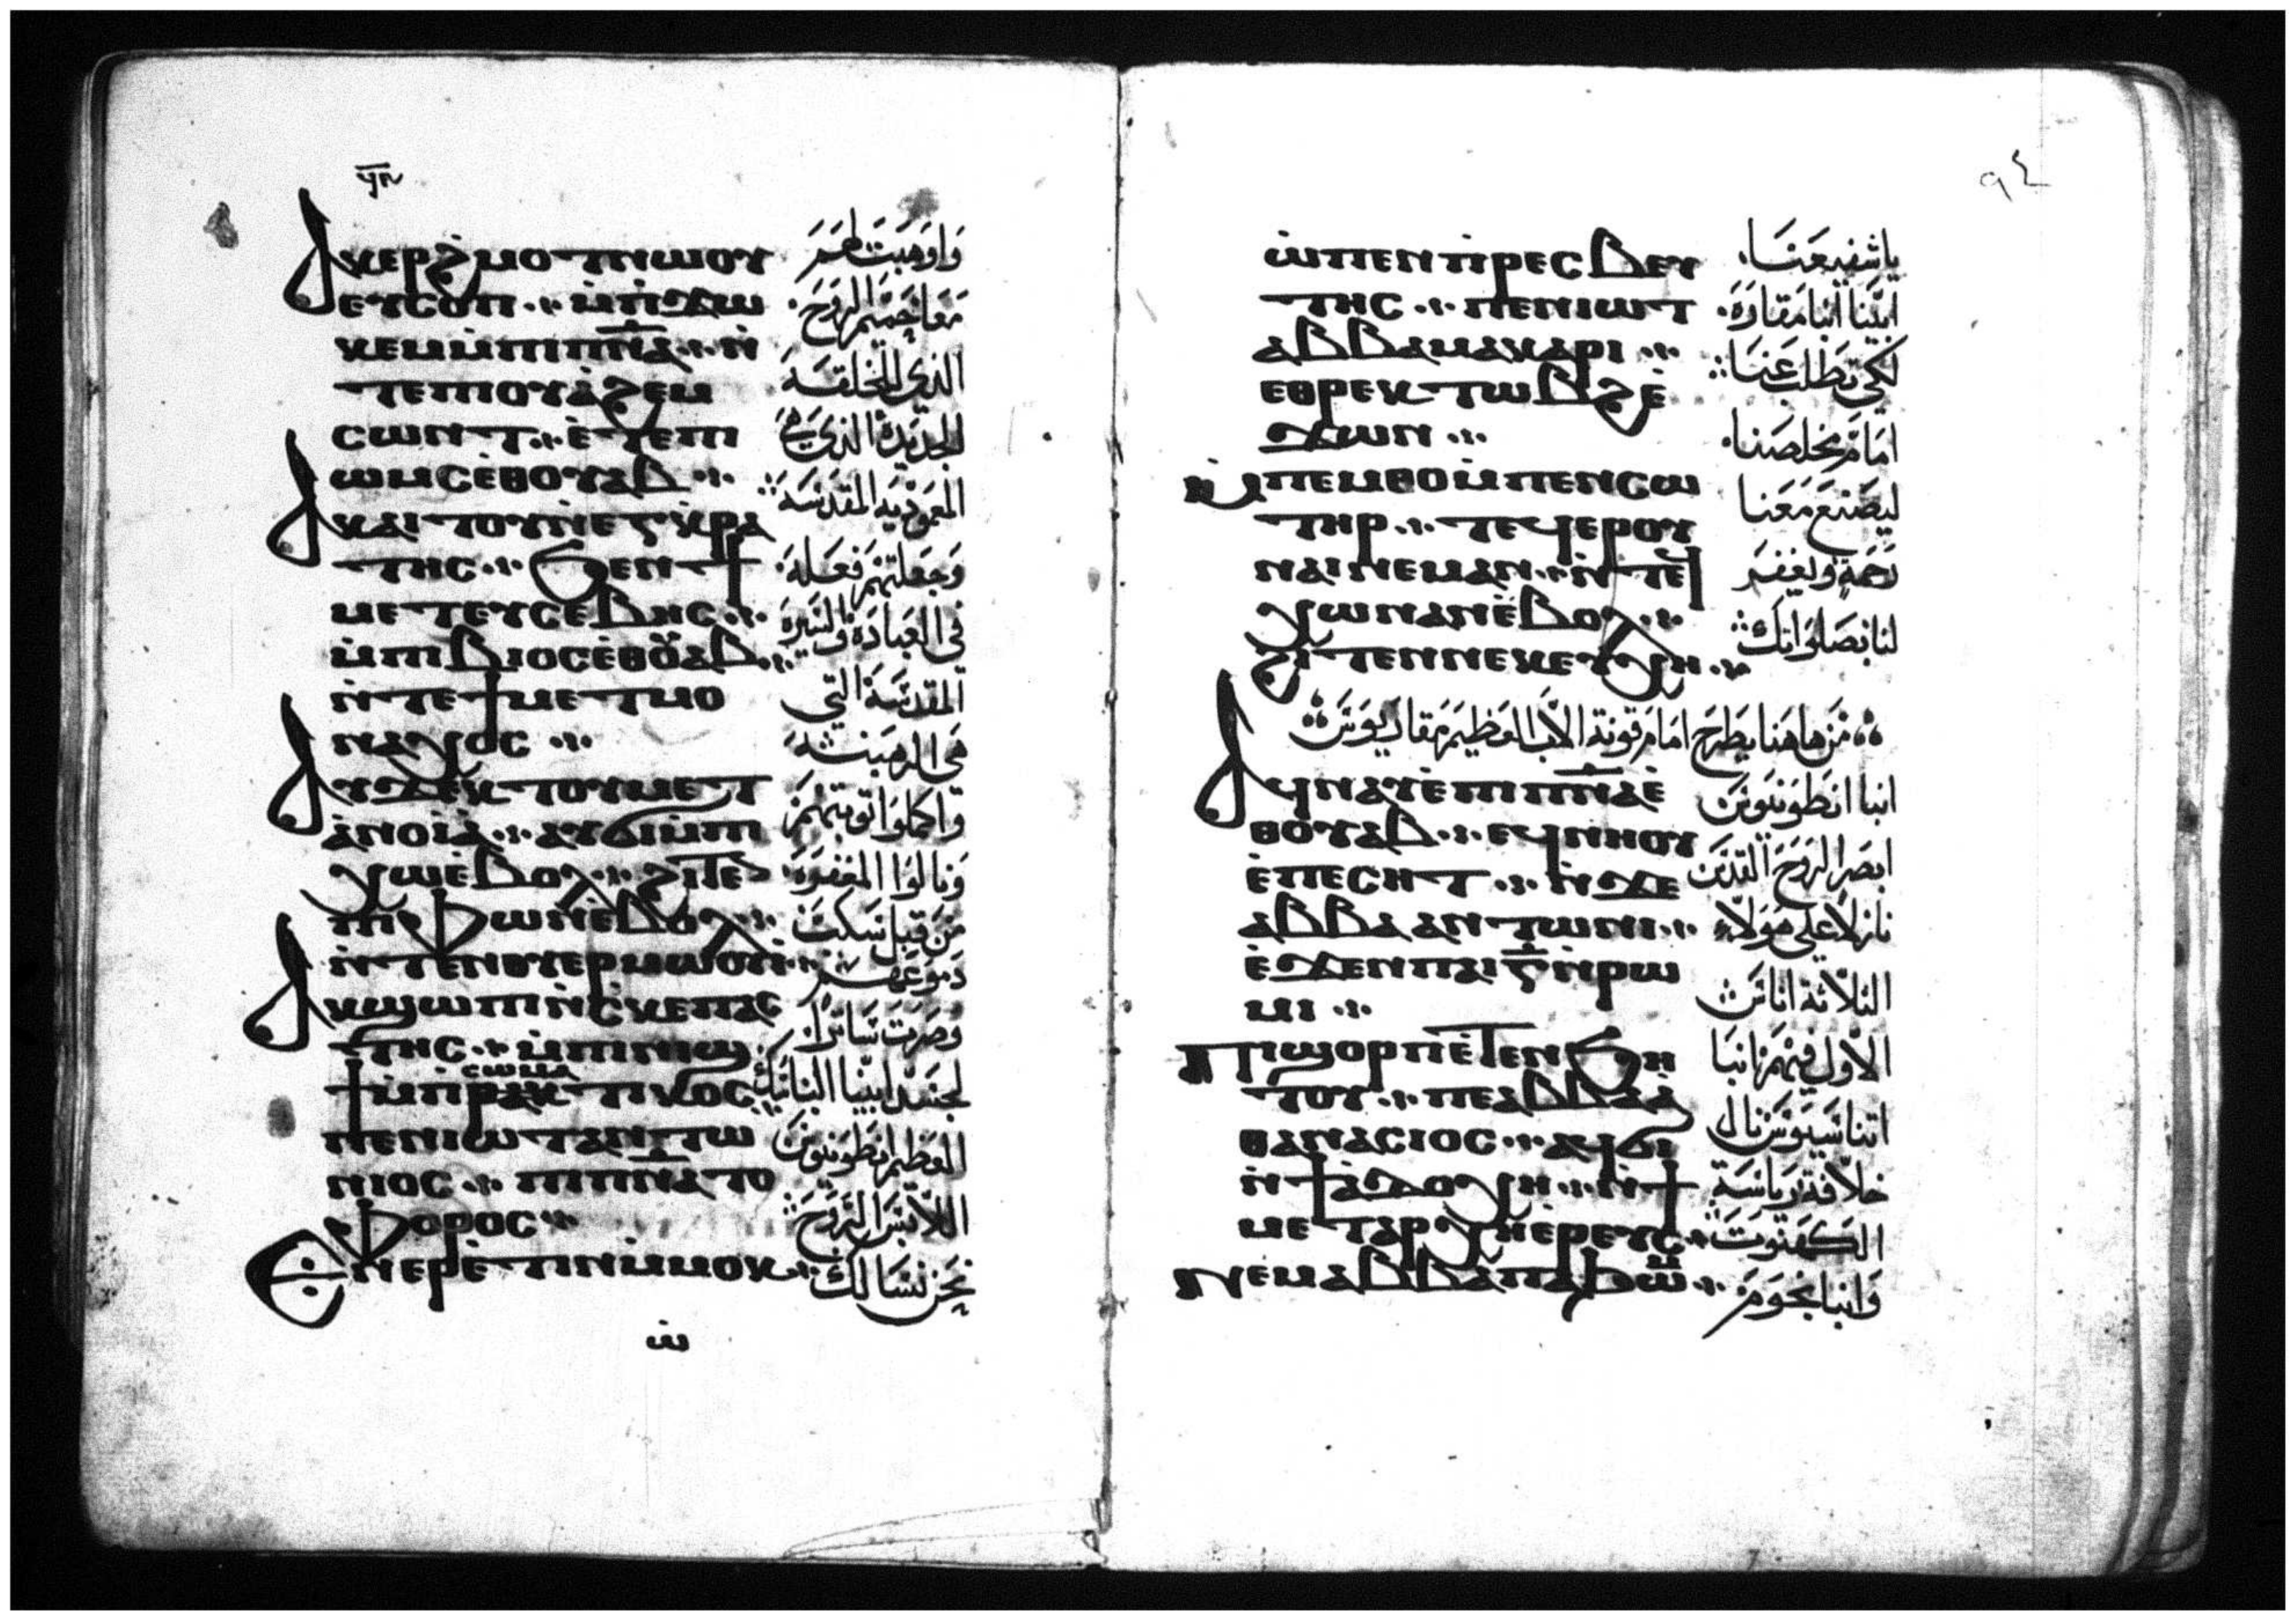 ⲁⲕⲉⲣϩ̇ⲙⲟⲧⲛⲱⲟⲩ
ⲉⲩⲥⲟⲡ ⲙ̇ⲡ̇ϫⲱ
ⲕⲉⲙⲙ̇ⲡⲓⲡ̅ⲛ̅ⲁ̅ ⲛ̇
ⲧⲉⲡⲓⲟⲩⲁ̇ϩⲉⲙ
ⲥⲱⲛⲧ ⲉ̇ⲧⲉⲡⲓ
ⲱⲙⲥⲉ̇ⲑⲟⲩⲁⲃ
ⲁⲕⲁⲓⲧⲟⲩⲛ̇ⲉⲣⲅⲁ
ⲧⲏⲥ ϧⲉⲛϯ
ⲙⲉⲧⲉⲩⲥⲉⲃⲏⲥ
ⲙ̇ⲡⲓⲃⲓⲟⲥⲉ̇ⲑⲟ̈ⲁⲃ
ⲛ̇ⲧⲉϯⲙⲉⲧⲙⲟ
ⲛⲁⲭⲟⲥ
ⲁⲩϫⲉⲕⲧⲟⲩⲙⲉⲧ
ⲁ̇ⲛⲟⲓⲁ̇ ⲁⲩϭⲓⲙ̇ⲡⲓ
ⲭⲱⲉ̇ⲃⲟⲗ ϩⲓⲧⲉ
ⲡⲓⲫⲱⲛⲉ̇ⲃⲟⲗ
ⲛ̇ⲧⲉⲛⲟⲩⲉⲣⲙⲱⲟⲩⲓ̇
ⲁⲕϣⲱⲡⲓⲛ̇ⲥ̇ⲕⲉⲡⲁⲥ
ⲧⲏⲥ ⲙ̇ⲡⲓⲛⲓϣ
ⲥⲱⲙⲁ
ϯⲙ̇ⲡⲣⲁⲕⲧⲓⲕⲟⲥ
ⲡⲉⲛⲓⲱⲧⲁⲛⲧⲱ
ⲛⲓⲟⲥ ⲡⲓⲡ̅ⲛ̅ⲁ̅ⲧⲟ
ⲫⲟⲣⲟⲥ
ⲉⲛⲉⲣⲉ̇ⲧⲓⲛⲙ̇ⲙⲟⲕ
وَاوَهَبتَ لهَمَ
مَعَا حَمِيمَ الرَوحَ
الذي للخلقَة
الجدَيَدة الذي هيَ
المَعَمَوديَة المقدَسَة
وَجَعَلتهَمَ فعَلة
في العَبادَة والسَيَرة
المقدسَة التي
هَي الرهَبَنة
وَاكملوَا توبتَهمَ
وَنالوَا المَغفَرَة
مَن قبل سَكبَ
دَموعَهَمَ
وَصَرتَ سَاترًا
لجسَد ابينا الناسَك
العَظيم انطونيَوسَ
اللابسَ الرَوحَ
نحَن نسَالكَ
٩٤
ⲱ̇ⲡⲉⲛⲡ̇ⲣⲉⲥⲃⲉⲩ
ⲧⲏⲥ ⲡⲉⲛⲓⲱⲧ
ⲁⲃⲃⲁⲙⲁⲕⲁⲣⲓ
ⲉⲑⲣⲉⲕⲧⲱⲃϩⲉ̇
ϫⲱⲛ
ⲙ̇ⲡⲉⲙⲑⲟⲙ̇ⲡⲉⲛⲥⲱ
ⲧⲏⲣ ⲧⲉϥⲉⲣⲟⲩ
ⲛⲁⲓⲛⲉⲙⲁⲛ ⲛ̇ⲧⲉϥ
ⲭⲱⲛⲁⲛⲉ̇ⲃⲟⲗ
ϩⲓⲧⲉⲛⲛⲉⲕⲉⲩⲭⲏ
ياشفيعَنا
ابيَنا انبا مَقارَة
لكي تطَلب عَنا
امَامَ مخلصَنا
ليَصَنعَ مَعَنا
رَحَمة وَليَغفَرَ
لنا بصَلوَاتك
مَن هاهَنا يطَرحَ امَامَ قونة الاب العَظيمَ مَقاريَوسَ
ⲁϥⲛⲁⲩⲉ̇ⲡⲓⲡ̅ⲛ̅ⲁ̅ⲉ̇
ⲑⲟⲩⲁⲃ ⲉϥⲛⲏⲟⲩ
ⲉ̇ⲡⲉⲥⲏⲧ ⲛ̇ϫⲉ
ⲁⲃⲃⲁⲁⲛⲧⲱⲛⲓ
ⲉ̇ϫⲉⲛⲡⲁⲓⲅ̅ⲛ̇ⲣⲱ
ⲙⲓ
ⲡⲓϣⲟⲣⲡⲉ̇ⲧⲉⲛϧⲏ
ⲧⲟⲩ ⲡⲉⲁⲃⲃⲁⲁ̇
ⲑⲁⲛⲁⲥⲓⲟⲥ ⲁϥϭⲓ
ⲛ̇ϯⲇⲓⲁ̇ⲇⲟⲭⲏ ⲛ̇ϯ
ⲙⲉⲧⲁⲣⲭⲏⲉ̇ⲣⲉⲩⲥ
ⲛⲉⲙⲁⲃⲃⲁⲡⲁϧⲱ̈ⲙ
انبا انطَونيَوسَ
ابصَر الرَوحَ القدَسَ
نازلاً عَلى هَوَلاء
الثلاثة اناسَ
الاوَل فيهَمَ انبا
اتناسَيَوسَ نال
خلافة رَياسَة
الكهَنوَتَ
وَانبا بخوَمَ